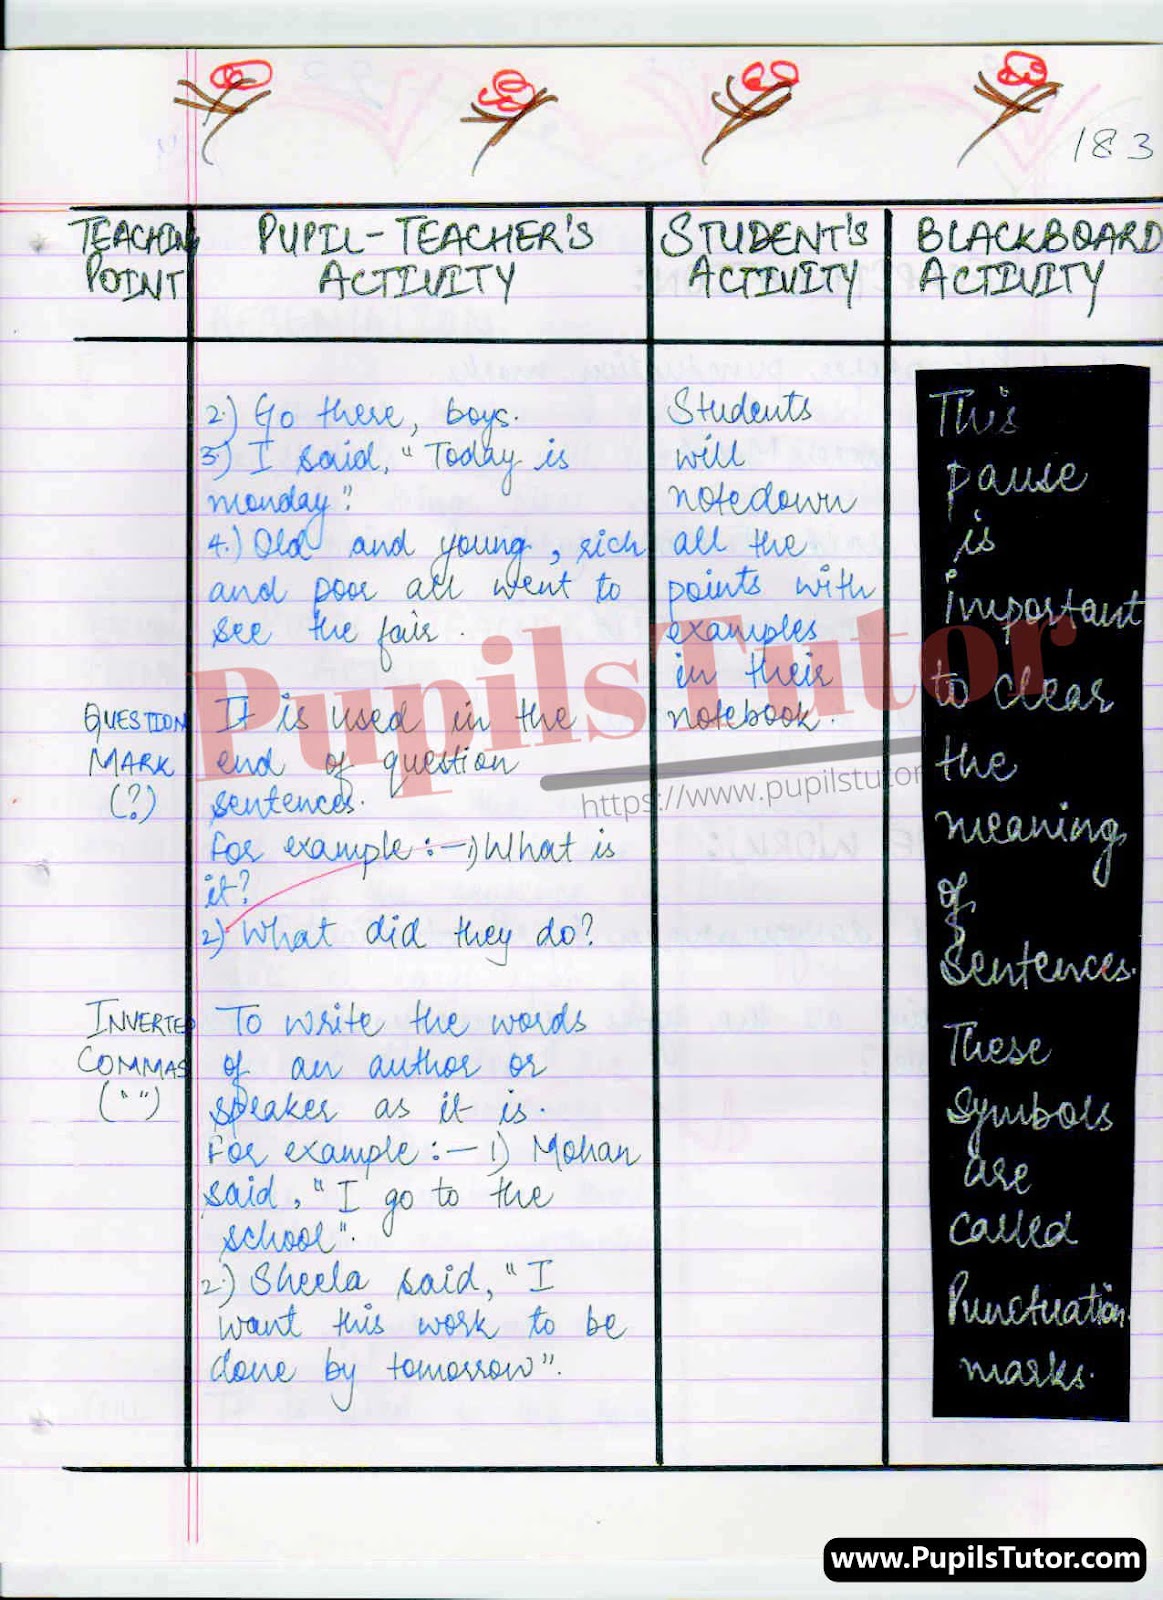 183
TEACHING
POINT
PUPIL-TEACHER'S
ACTIVITY
STUDENT'S
ACTIVITY
BLACKBOARD
ACTIVITY
2.) Go there, boys.
3) I said, "Today is
monday".
4.) Old and young, rich
and poor all went to
see the fair.
QUESTION
MARK
(?)
It is used in the
end of question
sentences.
For example :- 1) What is
it?
2) What did they do?
INVERTED
COMMAS
(" ")
To write the words
of an author or
speaker as it is.
For example :- 1) Mohan
said, "I go to the
school".
2.) Sheela said, "I
want this work to be
done by tomorrow".
Students
will
notedown
all the
points with
examples
in their
notebook.
This
pause
is
important
to clear
the
meaning
of
sentences.
These
symbols
are
called
Punctuation
marks.
PupilsTutor
https://www.pupilstutor
www.PupilsTutor.com